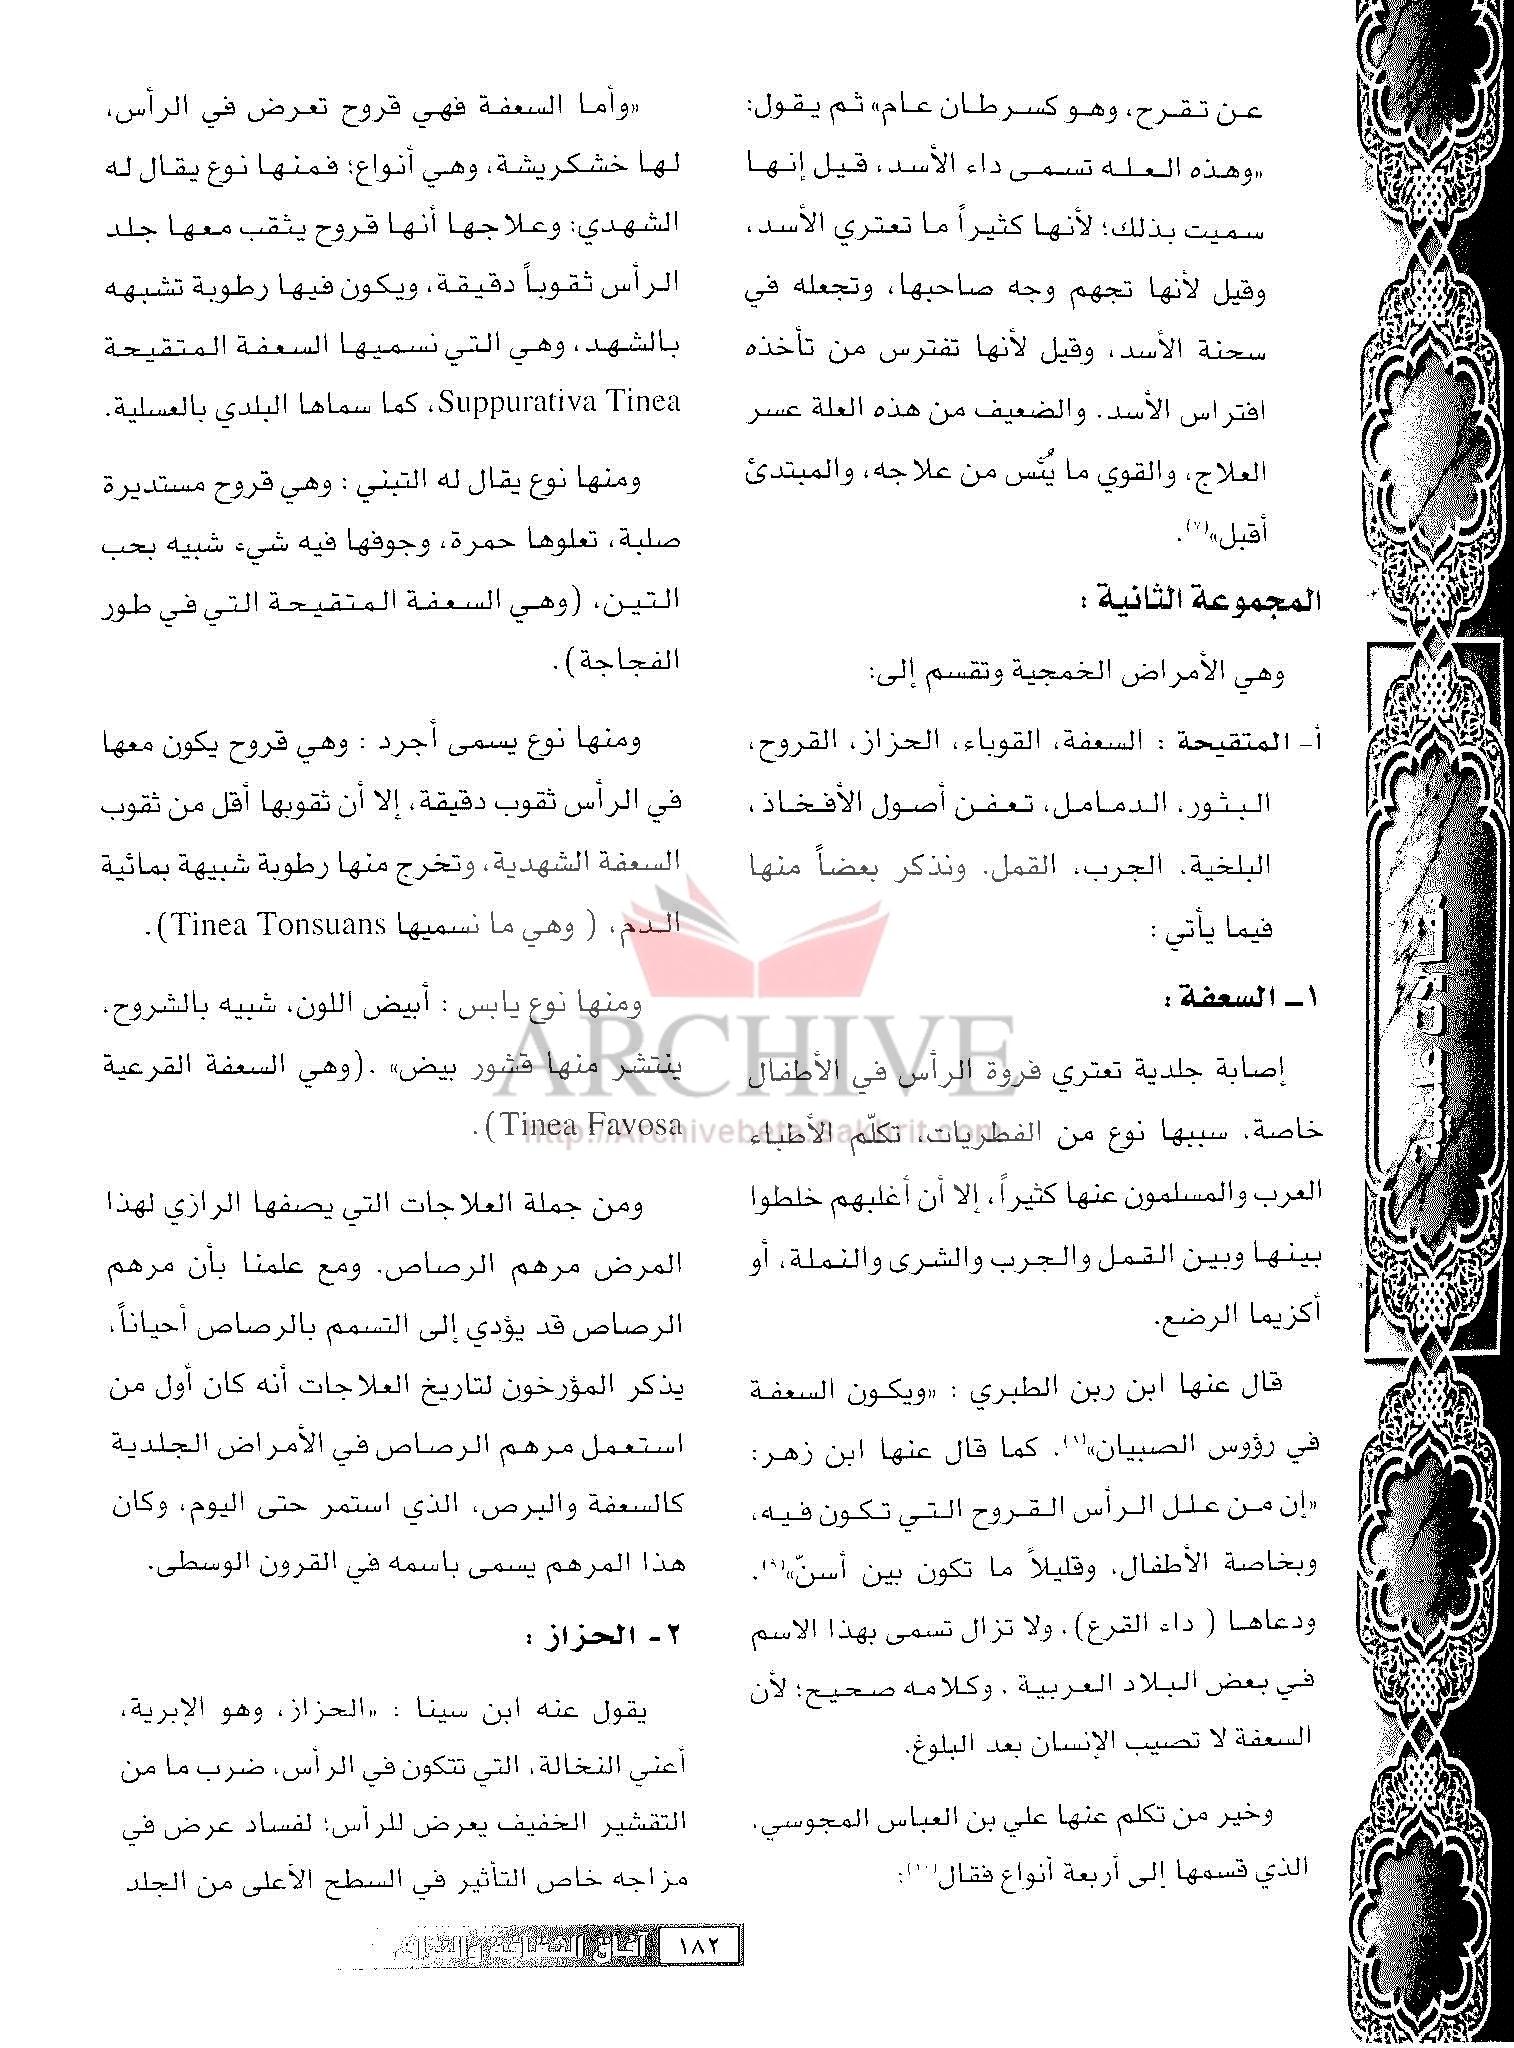 عن تقرح، وهو كسرطان عام» ثم يقول:
«وهذه العله تسمى داء الأسد، قيل إنها
سميت بذلك؛ لأنها كثيراً ما تعتري الأسد،
وقيل لأنها تجهم وجه صاحبها، وتجعله في
سحنة الأسد، وقيل لأنها تفترس من تأخذه
افتراس الأسد. والضعيف من هذه العلة عسر
العلاج، والقوي ما يُئس من علاجه، والمبتدئ
أقبل»(٧).
المجموعة الثانية :
وهي الأمراض الخمجية وتقسم إلى:
أ- المتقيحة : السعفة، القوباء، الحزاز، القروح،
البثور، الدمامل، تعفن أصول الأفخاذ،
البلخية، الجرب، القمل. ونذكر بعضاً منها
فيما يأتي :
١- السعفة :
إصابة جلدية تعتري فروة الرأس في الأطفال
خاصة، سببها نوع من الفطريات، تكلّم الأطباء
العرب والمسلمون عنها كثيراً، إلا أن أغلبهم خلطوا
بينها وبين القمل والجرب والشرى والنملة، أو
أكزيما الرضع.
قال عنها ابن ربن الطبري : «ويكون السعفة
في رؤوس الصبيان»(٨). كما قال عنها ابن زهر:
«إن من علل الرأس القروح التي تكون فيه،
وبخاصة الأطفال، وقليلاً ما تكون بين أسنّ»(٩).
ودعاها ( داء القرع)، ولا تزال تسمى بهذا الاسم
في بعض البلاد العربية . وكلامه صحيح؛ لأن
السعفة لا تصيب الإنسان بعد البلوغ.
وخير من تكلم عنها علي بن العباس المجوسي،
الذي قسمها إلى أربعة أنواع فقال(١٠):
«وأما السعفة فهي قروح تعرض في الرأس،
لها خشكريشة، وهي أنواع؛ فمنها نوع يقال له
الشهدي: وعلاجها أنها قروح يثقب معها جلد
الرأس ثقوباً دقيقة، ويكون فيها رطوبة تشبهه
بالشهد، وهي التي نسميها السعفة المتقيحة
Suppurativa Tinea، كما سماها البلدي بالعسلية.
ومنها نوع يقال له التبني : وهي قروح مستديرة
صلبة، تعلوها حمرة، وجوفها فيه شيء شبيه بحب
التين، (وهي السعفة المتقيحة التي في طور
الفجاجة).
ومنها نوع يسمى أجرد : وهي قروح يكون معها
في الرأس ثقوب دقيقة، إلا أن ثقوبها أقل من ثقوب
السعفة الشهدية، وتخرج منها رطوبة شبيهة بمائية
الدم، ( وهي ما نسميها Tinea Tonsuans).
ومنها نوع يابس : أبيض اللون، شبيه بالشروح،
ينتشر منها قشور بيض» .(وهي السعفة القرعية
Tinea Favosa).
ومن جملة العلاجات التي يصفها الرازي لهذا
المرض مرهم الرصاص. ومع علمنا بأن مرهم
الرصاص قد يؤدي إلى التسمم بالرصاص أحياناً،
يذكر المؤرخون لتاريخ العلاجات أنه كان أول من
استعمل مرهم الرصاص في الأمراض الجلدية
كالسعفة والبرص، الذي استمر حتى اليوم، وكان
هذا المرهم يسمى باسمه في القرون الوسطى.
٢- الحزاز :
يقول عنه ابن سينا : «الحزاز، وهو الإبرية،
أعني النخالة، التي تتكون في الرأس، ضرب ما من
التقشير الخفيف يعرض للرأس؛ لفساد عرض في
مزاجه خاص التأثير في السطح الأعلى من الجلد
ARCHIVE
http://Archivebeta.Sakhrit.com
١٨٢ آفاق الثقافة والتراث